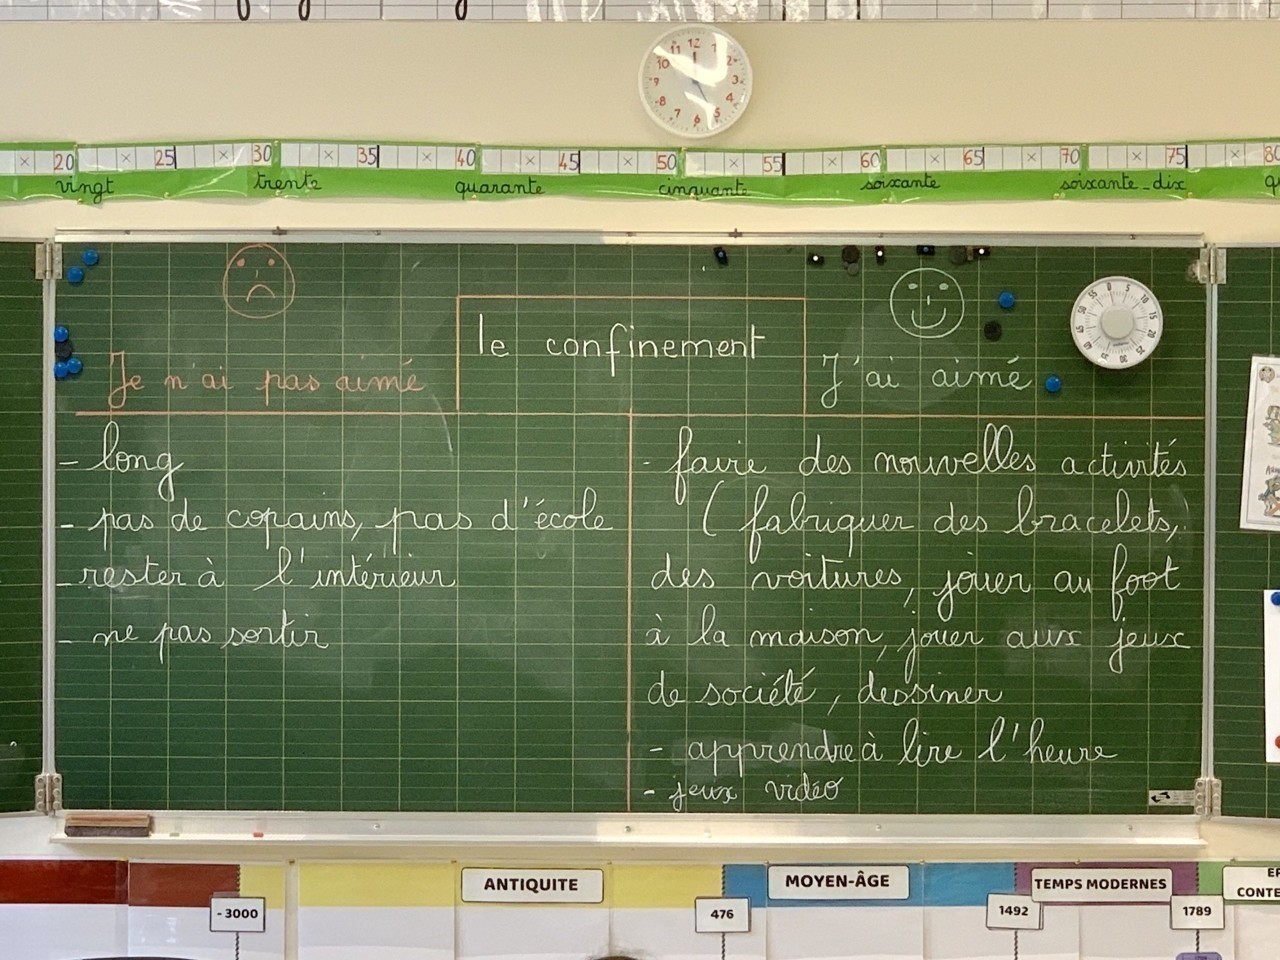 11 12 1
10 2
9 3
8 4
7 6 5
20 25 30 35 40 45 50 55 60 65 70 75 80
vingt trente quarante cinquante soixante soixante-dix
le confinement
Je n'ai pas aimé
J'ai aimé
55 0 5 10 15 20 25 30 35 40 45 50
- long
- pas de copains, pas d'école
- rester à l'intérieur
- ne pas sortir
- faire des nouvelles activités
( fabriquer des bracelets,
des voitures, jouer au foot
à la maison, jouer aux jeux
de société, dessiner
- apprendre à lire l'heure
- jeux vidéo
ANTIQUITE
MOYEN-ÂGE
TEMPS MODERNES
- 3000
476
1492
1789